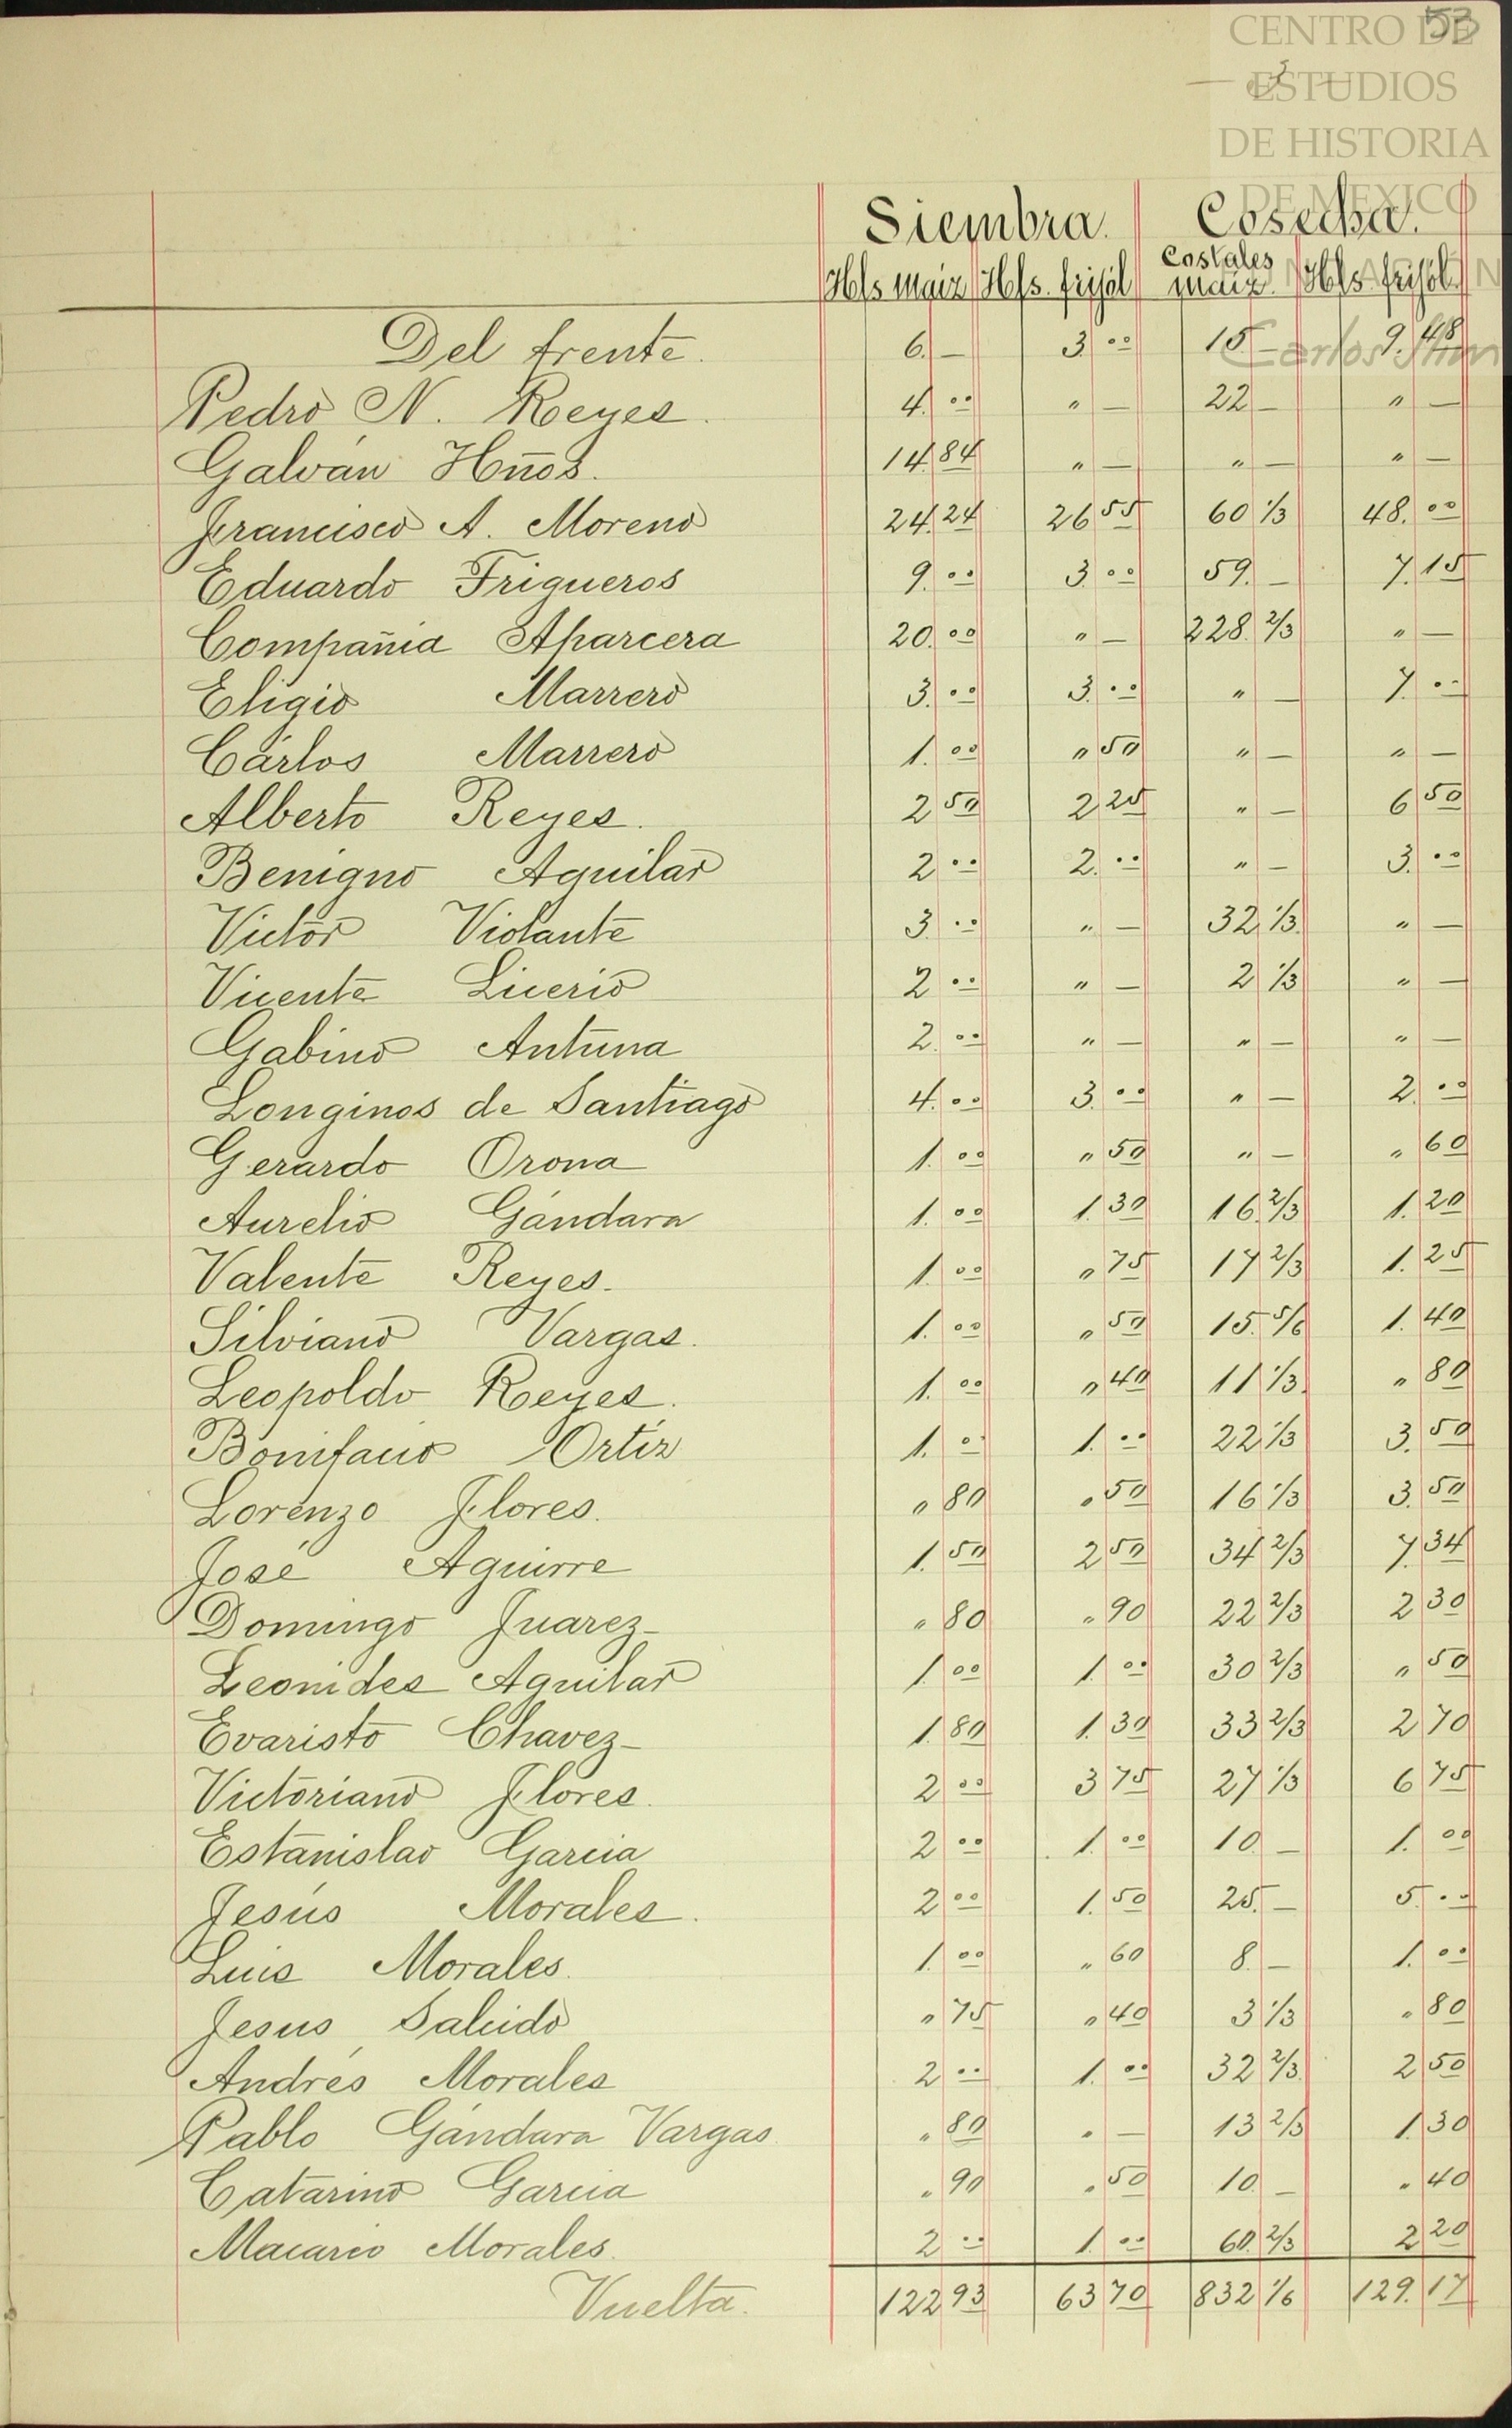 53
CENTRO DE
ESTUDIOS
DE HISTORIA
DE MEXICO
Carlos Slim
Siembra. Cosecha.
Hls maiz Hls. frijol Costales maiz. Hls frijol.
Del frente. 6. — 3. 00 15 — 9. 48
Pedro N. Reyes. 4. 00 " — 22 — " —
Galván Hnõs. 14. 84 " — " — " —
Francisco A. Moreno 24. 24 26 55 60 1/3 48. 00
Eduardo Trigueros 9. 00 3. 00 59. — 7. 15
Compañia Aparcera 20. 00 " — 228. 2/3 " —
Eligio Marrero 3. 00 3. 00 " — 7. 00
Cárlos Marrero 1. 00 " 50 " — " —
Alberto Reyes. 2 50 2 25 " — 6 50
Benigno Aguilar 2 00 2. 00 " — 3. 00
Victor Violante 3. 00 " — 32 1/3 " —
Vicente Licerio 2 00 " — 2 1/3 " —
Gabino Antuna 2. 00 " — " — " —
Longinos de Santiago 4. 00 3. 00 " — 2. 00
Gerardo Orona 1. 00 " 50 " — " 60
Aurelio Gándara 1. 00 1. 30 16. 2/3 1. 20
Valente Reyes. 1. 00 " 75 17 2/3 1. 25
Silviano Vargas. 1. 00 " 50 15. 5/6 1. 40
Leopoldo Reyes. 1. 00 " 40 11 1/3 " 80
Bonifacio Ortiz 1. 00 1. 00 22 1/3 3. 50
Lorenzo Flores. " 80 " 50 16 1/3 3. 50
José Aguirre 1. 50 2 50 34 2/3 7. 34
Domingo Juarez " 80 " 90 22 2/3 2 30
Leonides Aguilar 1. 00 1 00 30 2/3 " 50
Evaristo Chavez 1. 80 1. 30 33 2/3 2 70
Victoriano Flores. 2 00 3 75 27 1/3 6 75
Estanislao Garcia 2 00 1. 00 10 — 1. 00
Jesús Morales. 2 00 1. 50 25. — 5. 00
Luis Morales. 1. 00 " 60 8. — 1. 00
Jesus Salcido " 75 " 40 3 1/3 " 80
Andrés Morales 2 00 1. 00 32 2/3 2 50
Pablo Gándara Vargas " 80 " — 13 2/3 1. 30
Catarino Garcia " 90 " 50 10 — " 40
Macario Morales. 2 00 1. 00 60. 2/3 2 20
Vuelta. 122 93 63 70 832 1/6 129. 17